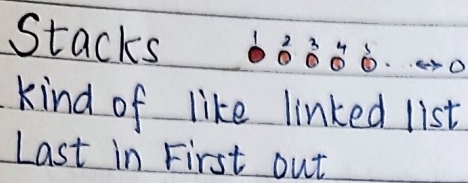 Stacks 1 2 3 4 5 .. ↔ 0
kind of like linked list
Last in First out